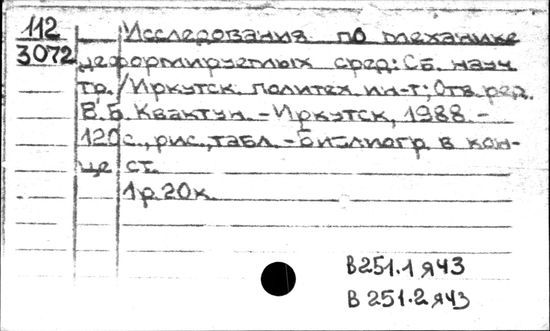 112
3072
Исследования по механике
деформируемых сред: Сб. науч.
тр./Иркутск. политех. ин-т; Отв. ред.
В. Б. Квактун. - Иркутск, 1988. -
120 с., рис., табл. - Библиогр. в кон-
це ст.
1 р. 20 к.
В 251.1 я43
В 251.2 я43